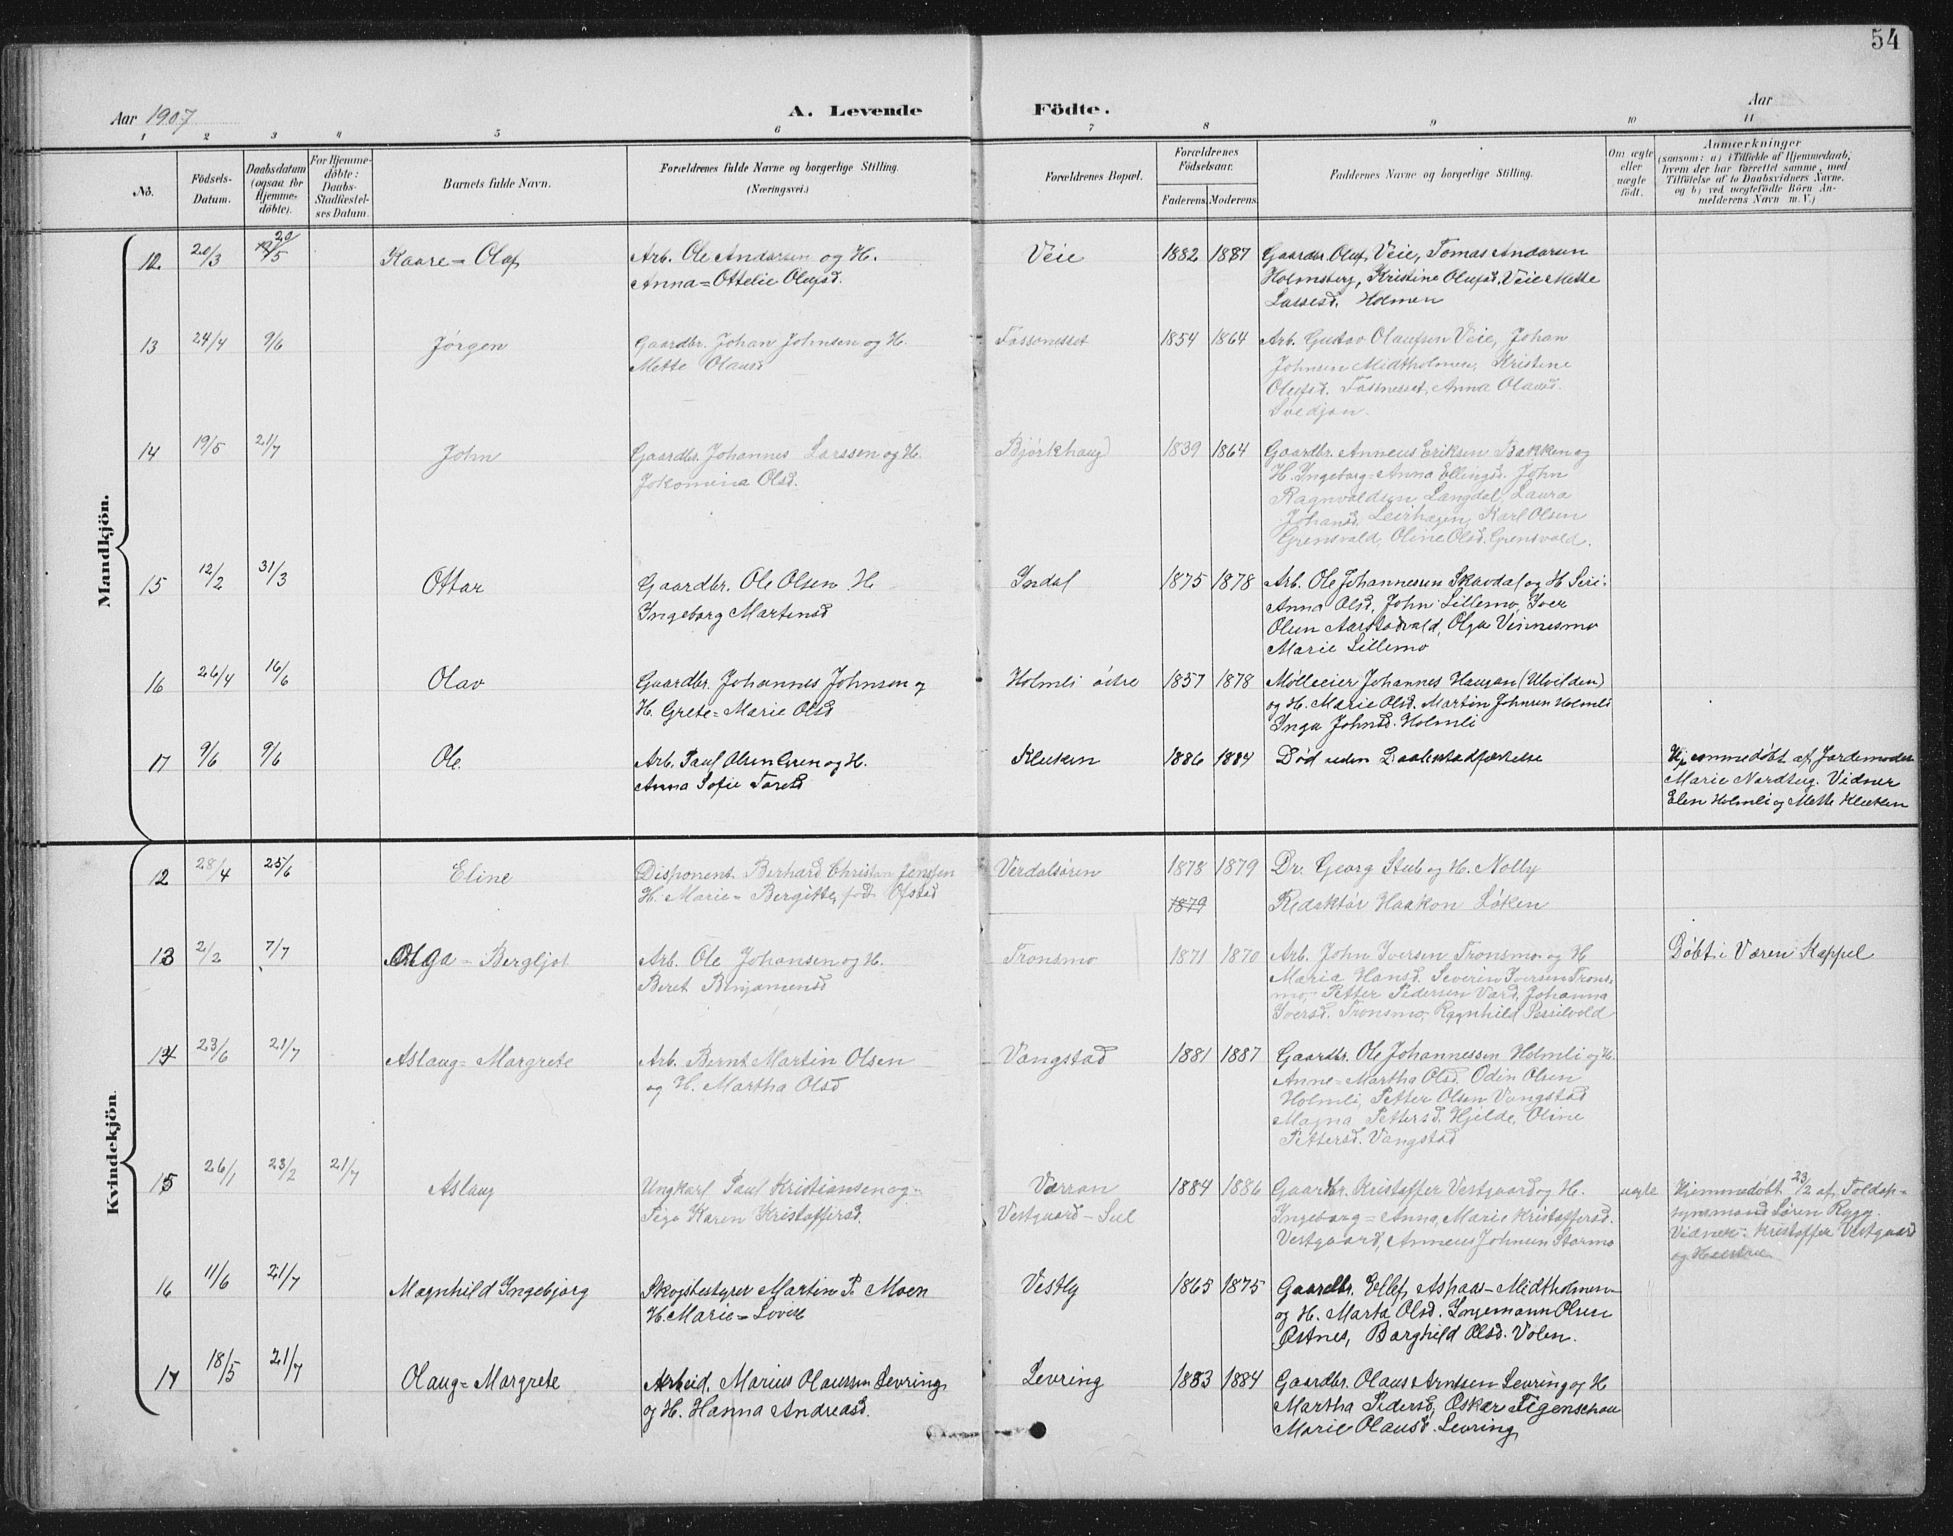 54
Aar 1907
A. Levende Födte.
Aar
1 2 3 4 5 6 7 8 9 10 11
No.
Födsels-Datum.
Daabsdatum (ogsaa for Hjemme-döbte).
For Hjemme-döbte: Daabs-Stadfæstel-ses Datum.
Barnets fulde Navn.
Forældrenes fulde Navne og borgerlige Stilling. (Næringsvei.)
Forældrenes Bopæl.
Forældrenes Födselsaar.
Faderens. Moderens.
Faddernes Navne og borgerlige Stilling.
Om ægte eller uægte födt.
Anmærkninger
(saasom: a) i Tilfælde af Hjemmedaab,
hvem der har forrettet samme, med
Tilföielse af to Daabsvidners Navne,
og b) ved uægtefödte Börn An-
melderens Navn m. V.)
Mandkjön.
12 20/3 20/5 Kaare=Olaf Arb. Ole Andersen og H. Veie 1882 1887 Gaardbr. Oluf Veie, Tomas Andersen
Anna=Ottelie Olufsd. Holmsberg, Kristine Olufsd. Veie Mette
Lassesd. Holmen
13 24/4 9/6 Jørgen Gaardbr. Johan Johnsen og H. Fossnesset 1854 1864 Arb. Gustav Olaufsen Veie, Johan
Mette Olausd Johnsen Midtholmen, Kristine
Olufsd. Fossnesset, Anna Olausd.
Svedjan.
14 19/5 21/7 John Gaardbr. Johannes Larssen og H. Bjørkhaug 1839 1864 Gaardbr. Anneus Eriksen Bakken og
Jokomina Olsd. H. Ingeborg=Anna Ellingsd. John
Ragnvaldsen Langdal, Laura
Johansd. Leirhagen, Karl Olsen
Grensvald, Oline Olsd. Grensvold.
15 12/2 31/3 Ottar Gaardbr. Ole Olsen H Indal 1875 1878 Arb. Ole Johannessen Skavdal og H Seri-
Ingeborg Martinsd Anna Olsd, John Lillemo, Iver
Olsen Aarstadvald, Olga Vinnesmo
Marie Lillemo
16 26/4 16/6 Olav Gaardbr. Johannes Johnsen og Holmli östre 1857 1878 Mølleeier Johannes Haugan (Ulvilden)
H. Grete=Marie Olsd og H. Marie Olsd. Martin Johnsen Holmli
Inga Johnsd. Holmli
17 9/6 9/6 Ole Arb. Paul Olsen Gren og H. Kluken 1886 1884 Død uden Daabsstadfæstelse Hjemmedøbt af Jordemoder
Anna Sofie Toresd Marie Nordtug. Vidner
Elen Holmli og Mette Kluken
Kvindekjön.
12 28/4 25/6 Eline Disponent Berhard Christian Jenssen Verdalsören 1878 1879 Dr. Georg Stub og H. Nolly
H. Marie=Bergitte, föd Ofstad 1879 Redaktör Haakon Løken
13 2/2 7/7 Olga=Bergljot Arb. Ole Johansen og H. Tronsmo 1871 1870 Arb. John Iversen Tronsmo og H Døbt i Væren Kappel
Beret Benjamensd Maria Hansd. Severin Iversen Trons-
mo, Petter Pedersen Vard, Johanna
Iversd. Tronsmo, Ragnhild
14 23/6 21/7 Aslaug=Margrete Arb. Bernt Martin Olsen Vangstad 1881 1887 Gaardbr. Ole Johannessen Holmli og H.
og H. Martha Olsd Anne=Martha Olsd. Odin Olsen
Holmli, Petter Olsen Vangstad
Magna Pettersd. Hjelde, Oline
Pettersd. Vangstad
15 26/1 23/2 21/7 Aslaug Ungkarl Paul Kristiansen og Værran 1884 1886 Gaardbr. Kristoffer Vestgaard og H. uægte Hjemmedøbt 23/2 af Toldop-
Pige Karen Kristoffersd. Vestgaard=Sul Ingeborg=Anna, Marie Kristoffersd. synsmand Søren Rygg.
Vestgaard, Anneus Johnsen Stormo Vidner: Kristoffer Vestgaard
og
16 11/6 21/7 Magnhild Ingebjørg Skogbestyrer Martin P. Moen Vestly 1865 1875 Gaardbr. Ellef Aspaas=Midtholmen
H. Marie=Lovise og H. Marta Olsd. Ingemann Olsen
Østnes, Borghild Olsd. Volen.
17 18/5 21/7 Olaug=Margrete Arbeid. Marius Olaussen Levring Levring 1883 1884 Gaardbr. Olaus Arntsen Levring og H
og H. Hanna Andreasd. Martha Pedersd, Oskar Tigenschou
Marie Olausd. Levring